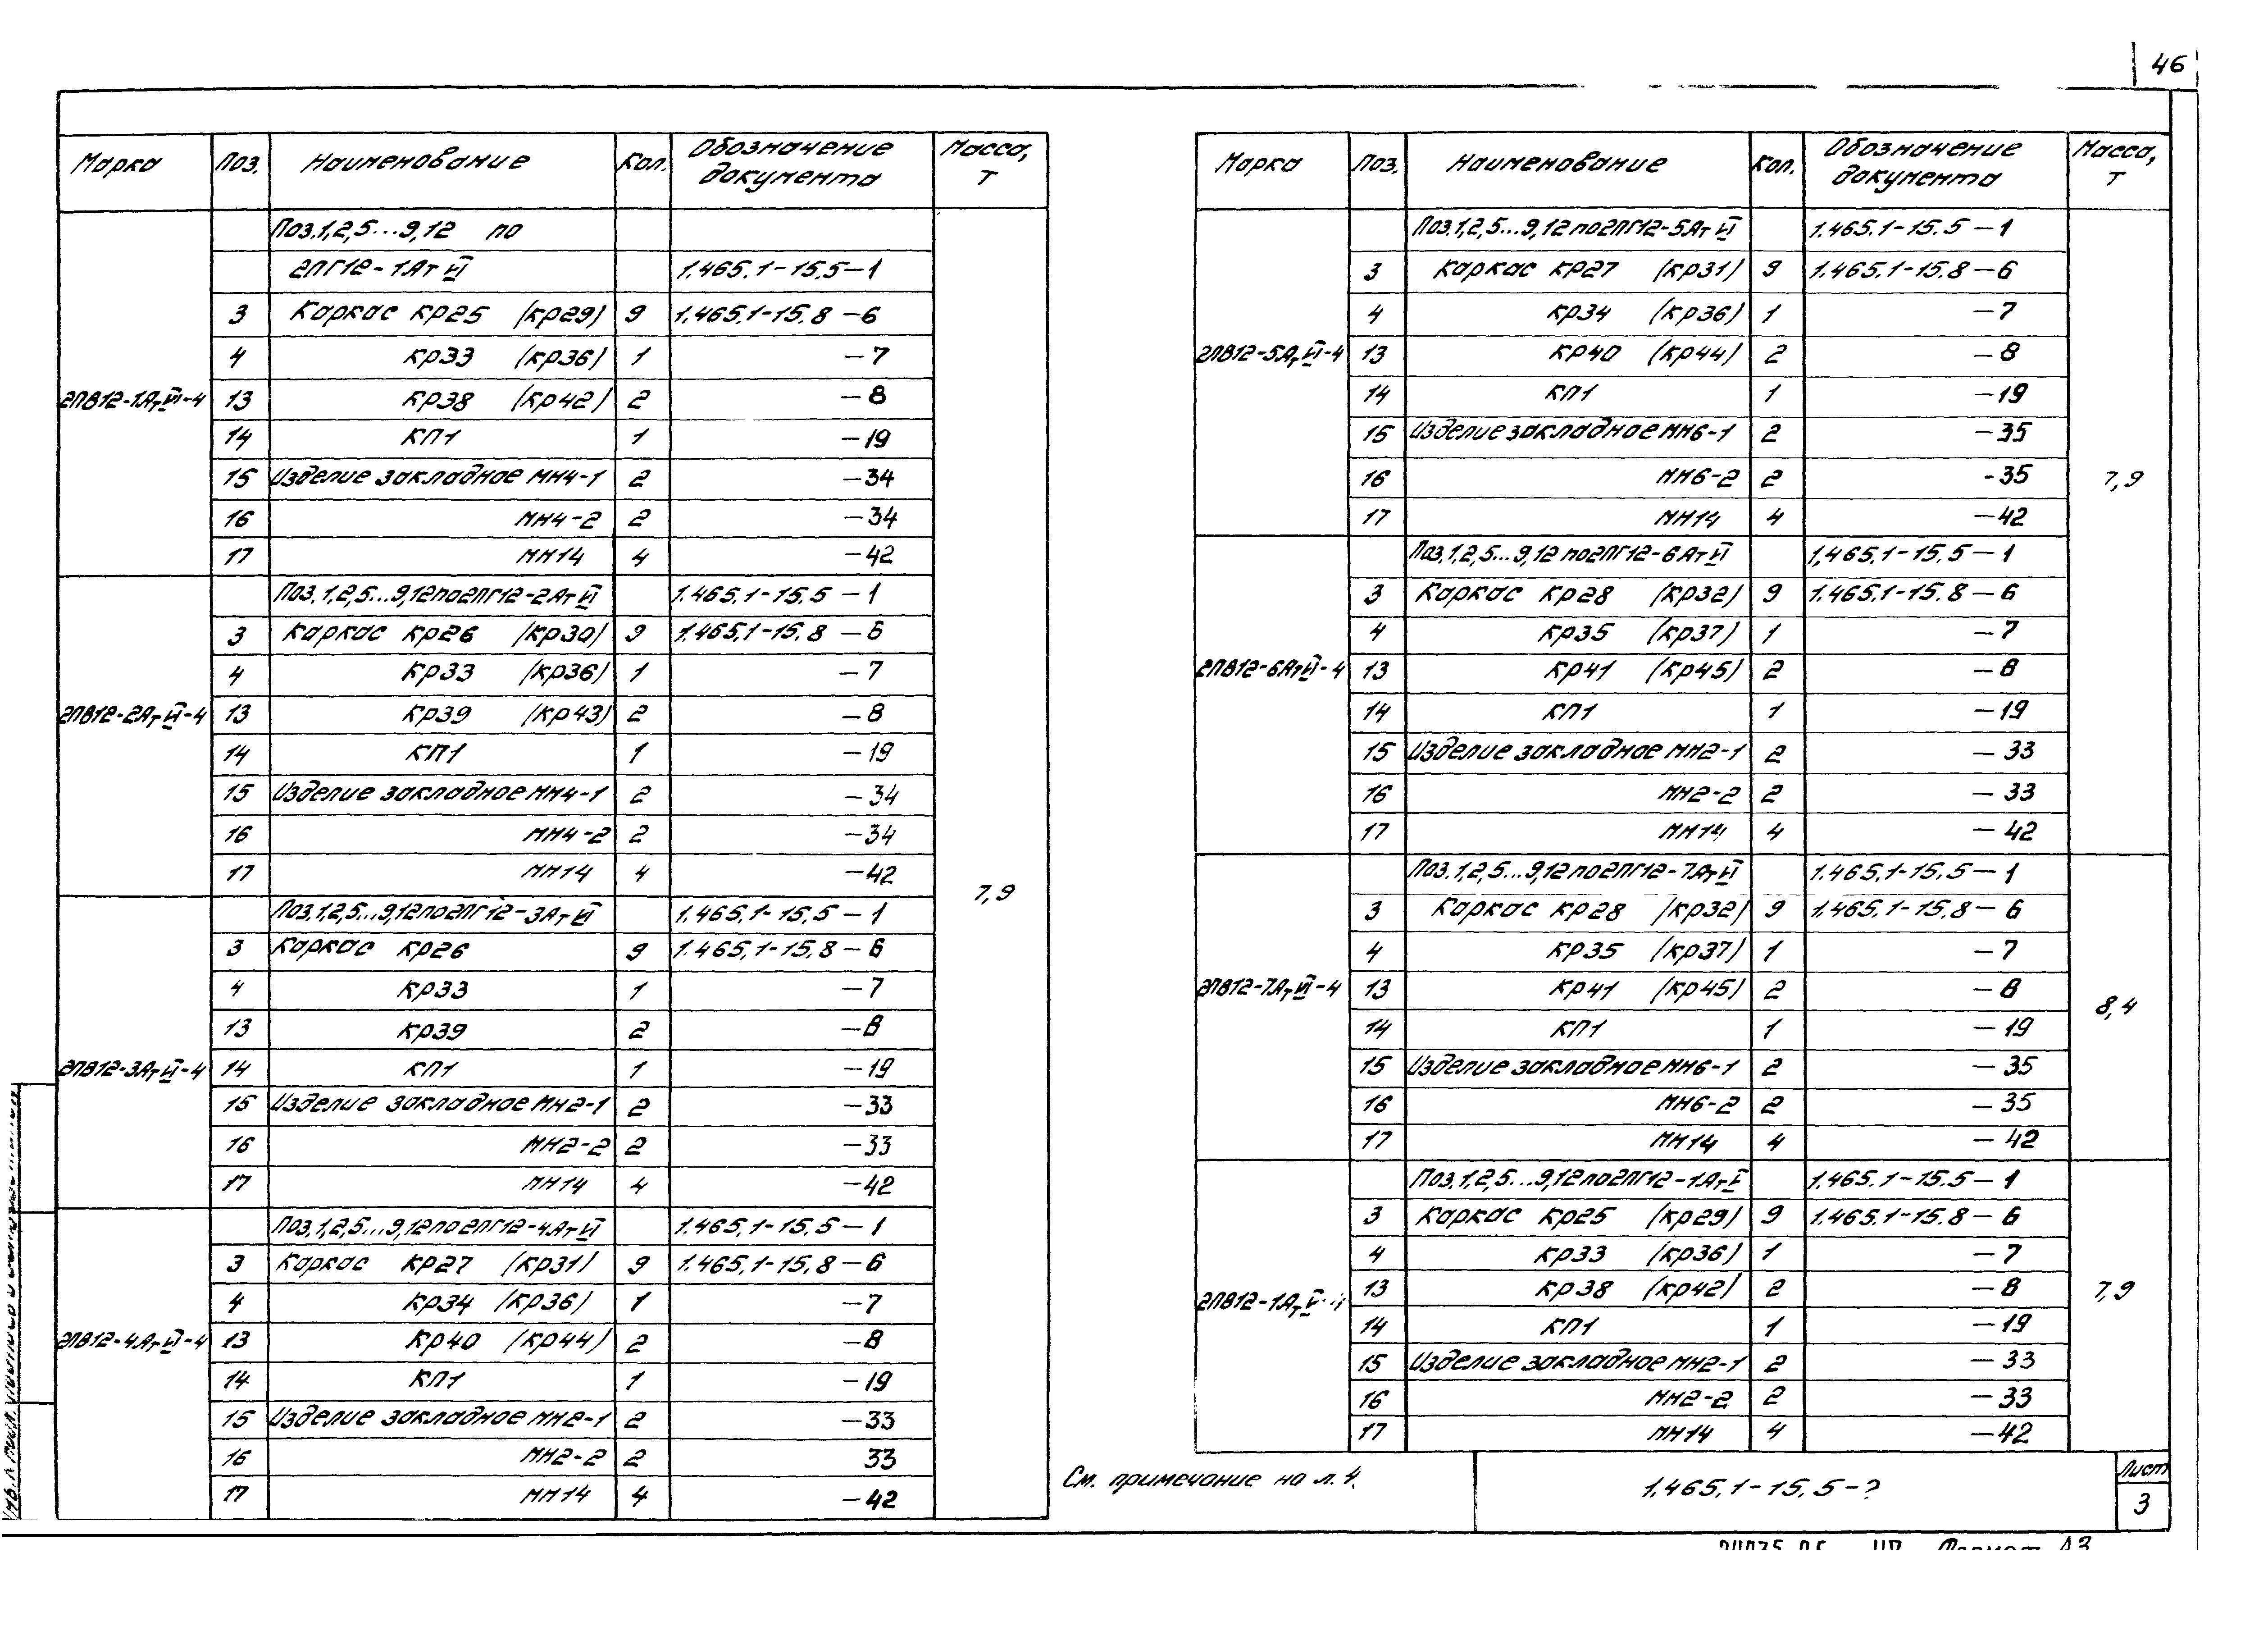 46
Марка Поз. Наименование Кол. Обозначение документа Масса, т
Поз.1,2,5...9,12 по
2ПГ12-1АтVI 1.465.1-15.5-1
3 Каркас КР25 (КР29) 9 1.465.1-15.8-6
4 КР33 (КР36) 1 -7
2ПВ12-1АтVI-4 13 КР38 (КР42) 2 -8
14 КП1 1 -19
15 Изделие закладное МН4-1 2 -34
16 МН4-2 2 -34
17 МН14 4 -42
Поз.1,2,5...9,12 по 2ПГ12-2АтVI 1.465.1-15.5-1
3 Каркас КР26 (КР30) 9 1.465.1-15.8-6
4 КР33 (КР36) 1 -7
2ПВ12-2АтVI-4 13 КР39 (КР43) 2 -8
14 КП1 1 -19
15 Изделие закладное МН4-1 2 -34
16 МН4-2 2 -34
17 МН14 4 -42
7,9
Поз.1,2,5...9,12 по 2ПГ12-3АтVI 1.465.1-15.5-1
3 Каркас КР26 9 1.465.1-15.8-6
4 КР33 1 -7
13 КР39 2 -8
2ПВ12-3АтVI-4 14 КП1 1 -19
15 Изделие закладное МН2-1 2 -33
16 МН2-2 2 -33
17 МН14 4 -42
Поз.1,2,5...9,12 по 2ПГ12-4АтVI 1.465.1-15.5-1
3 Каркас КР27 (КР31) 9 1.465.1-15.8-6
4 КР34 (КР36) 1 -7
2ПВ12-4АтVI-4 13 КР40 (КР44) 2 -8
14 КП1 1 -19
15 Изделие закладное МН2-1 2 -33
16 МН2-2 2 33
17 МН14 4 -42
Марка Поз. Наименование Кол. Обозначение документа Масса, т
Поз.1,2,5...9,12 по 2ПГ12-5АтVI 1.465.1-15.5-1
3 Каркас КР27 (КР31) 9 1.465.1-15.8-6
4 КР34 (КР36) 1 -7
2ПВ12-5АтVI-4 13 КР40 (КР44) 2 -8
14 КП1 1 -19
15 Изделие закладное МН6-1 2 -35
16 МН6-2 2 -35 7,9
17 МН14 4 -42
Поз.1,2,5...9,12 по 2ПГ12-6АтVI 1.465.1-15.5-1
3 Каркас КР28 (КР32) 9 1.465.1-15.8-6
4 КР35 (КР37) 1 -7
2ПВ12-6АтVI-4 13 КР41 (КР45) 2 -8
14 КП1 1 -19
15 Изделие закладное МН2-1 2 -33
16 МН2-2 2 -33
17 МН14 4 -42
Поз.1,2,5...9,12 по 2ПГ12-7АтVI 1.465.1-15.5-1
3 Каркас КР28 (КР32) 9 1.465.1-15.8-6
4 КР35 (КР37) 1 -7
2ПВ12-7АтVI-4 13 КР41 (КР45) 2 -8 8,4
14 КП1 1 -19
15 Изделие закладное МН6-1 2 -35
16 МН6-2 2 -35
17 МН14 4 -42
Поз.1,2,5...9,12 по 2ПГ12-1АтV 1.465.1-15.5-1
3 Каркас КР25 (КР29) 9 1.465.1-15.8-6
4 КР33 (КР36) 1 -7
2ПВ12-1АтV-4 13 КР38 (КР42) 2 -8 7,9
14 КП1 1 -19
15 Изделие закладное МН2-1 2 -33
16 МН2-2 2 -33
17 МН14 4 -42
См. примечание на л.4.
1.465.1-15.5-?
Лист
3
Формат А3